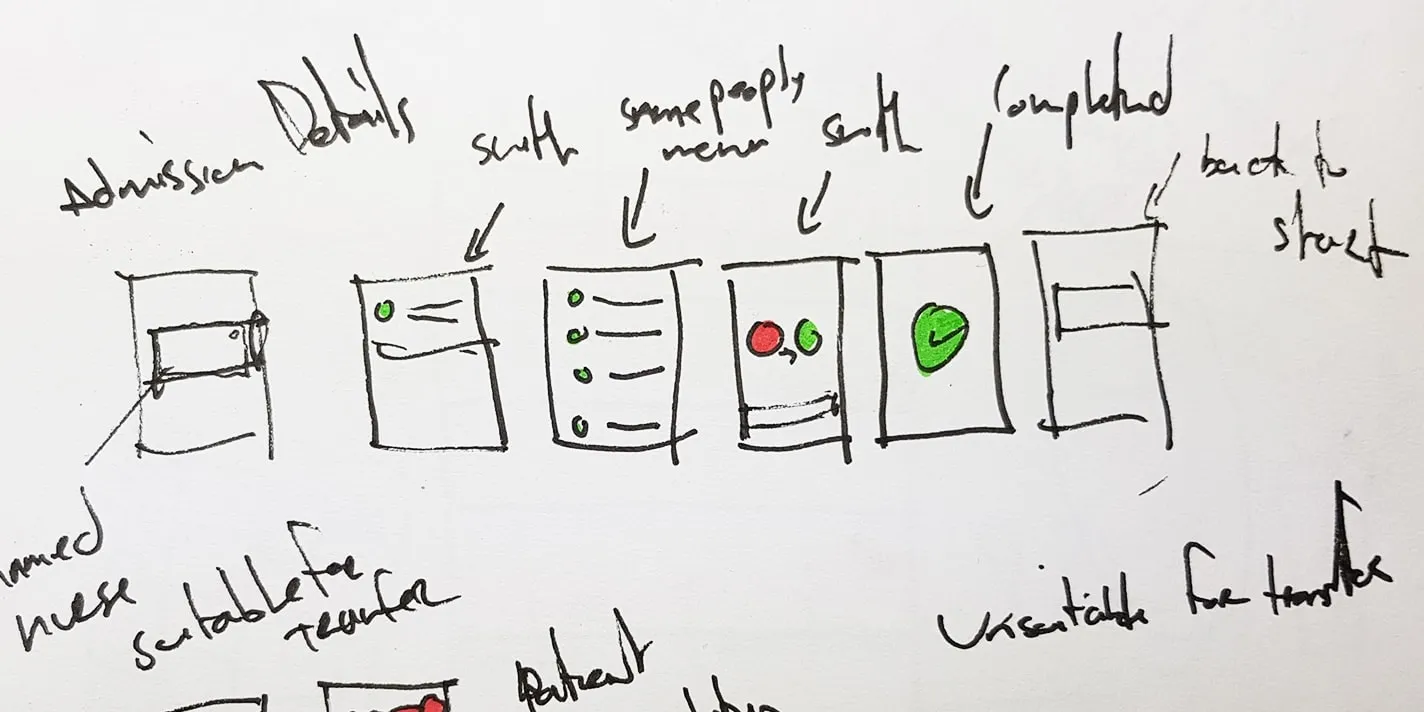 Admission Details
smith
same people
menu
smith
Completed
back to
start
named
nurse
suitable for
transfer
Unsuitable for transfer
patient